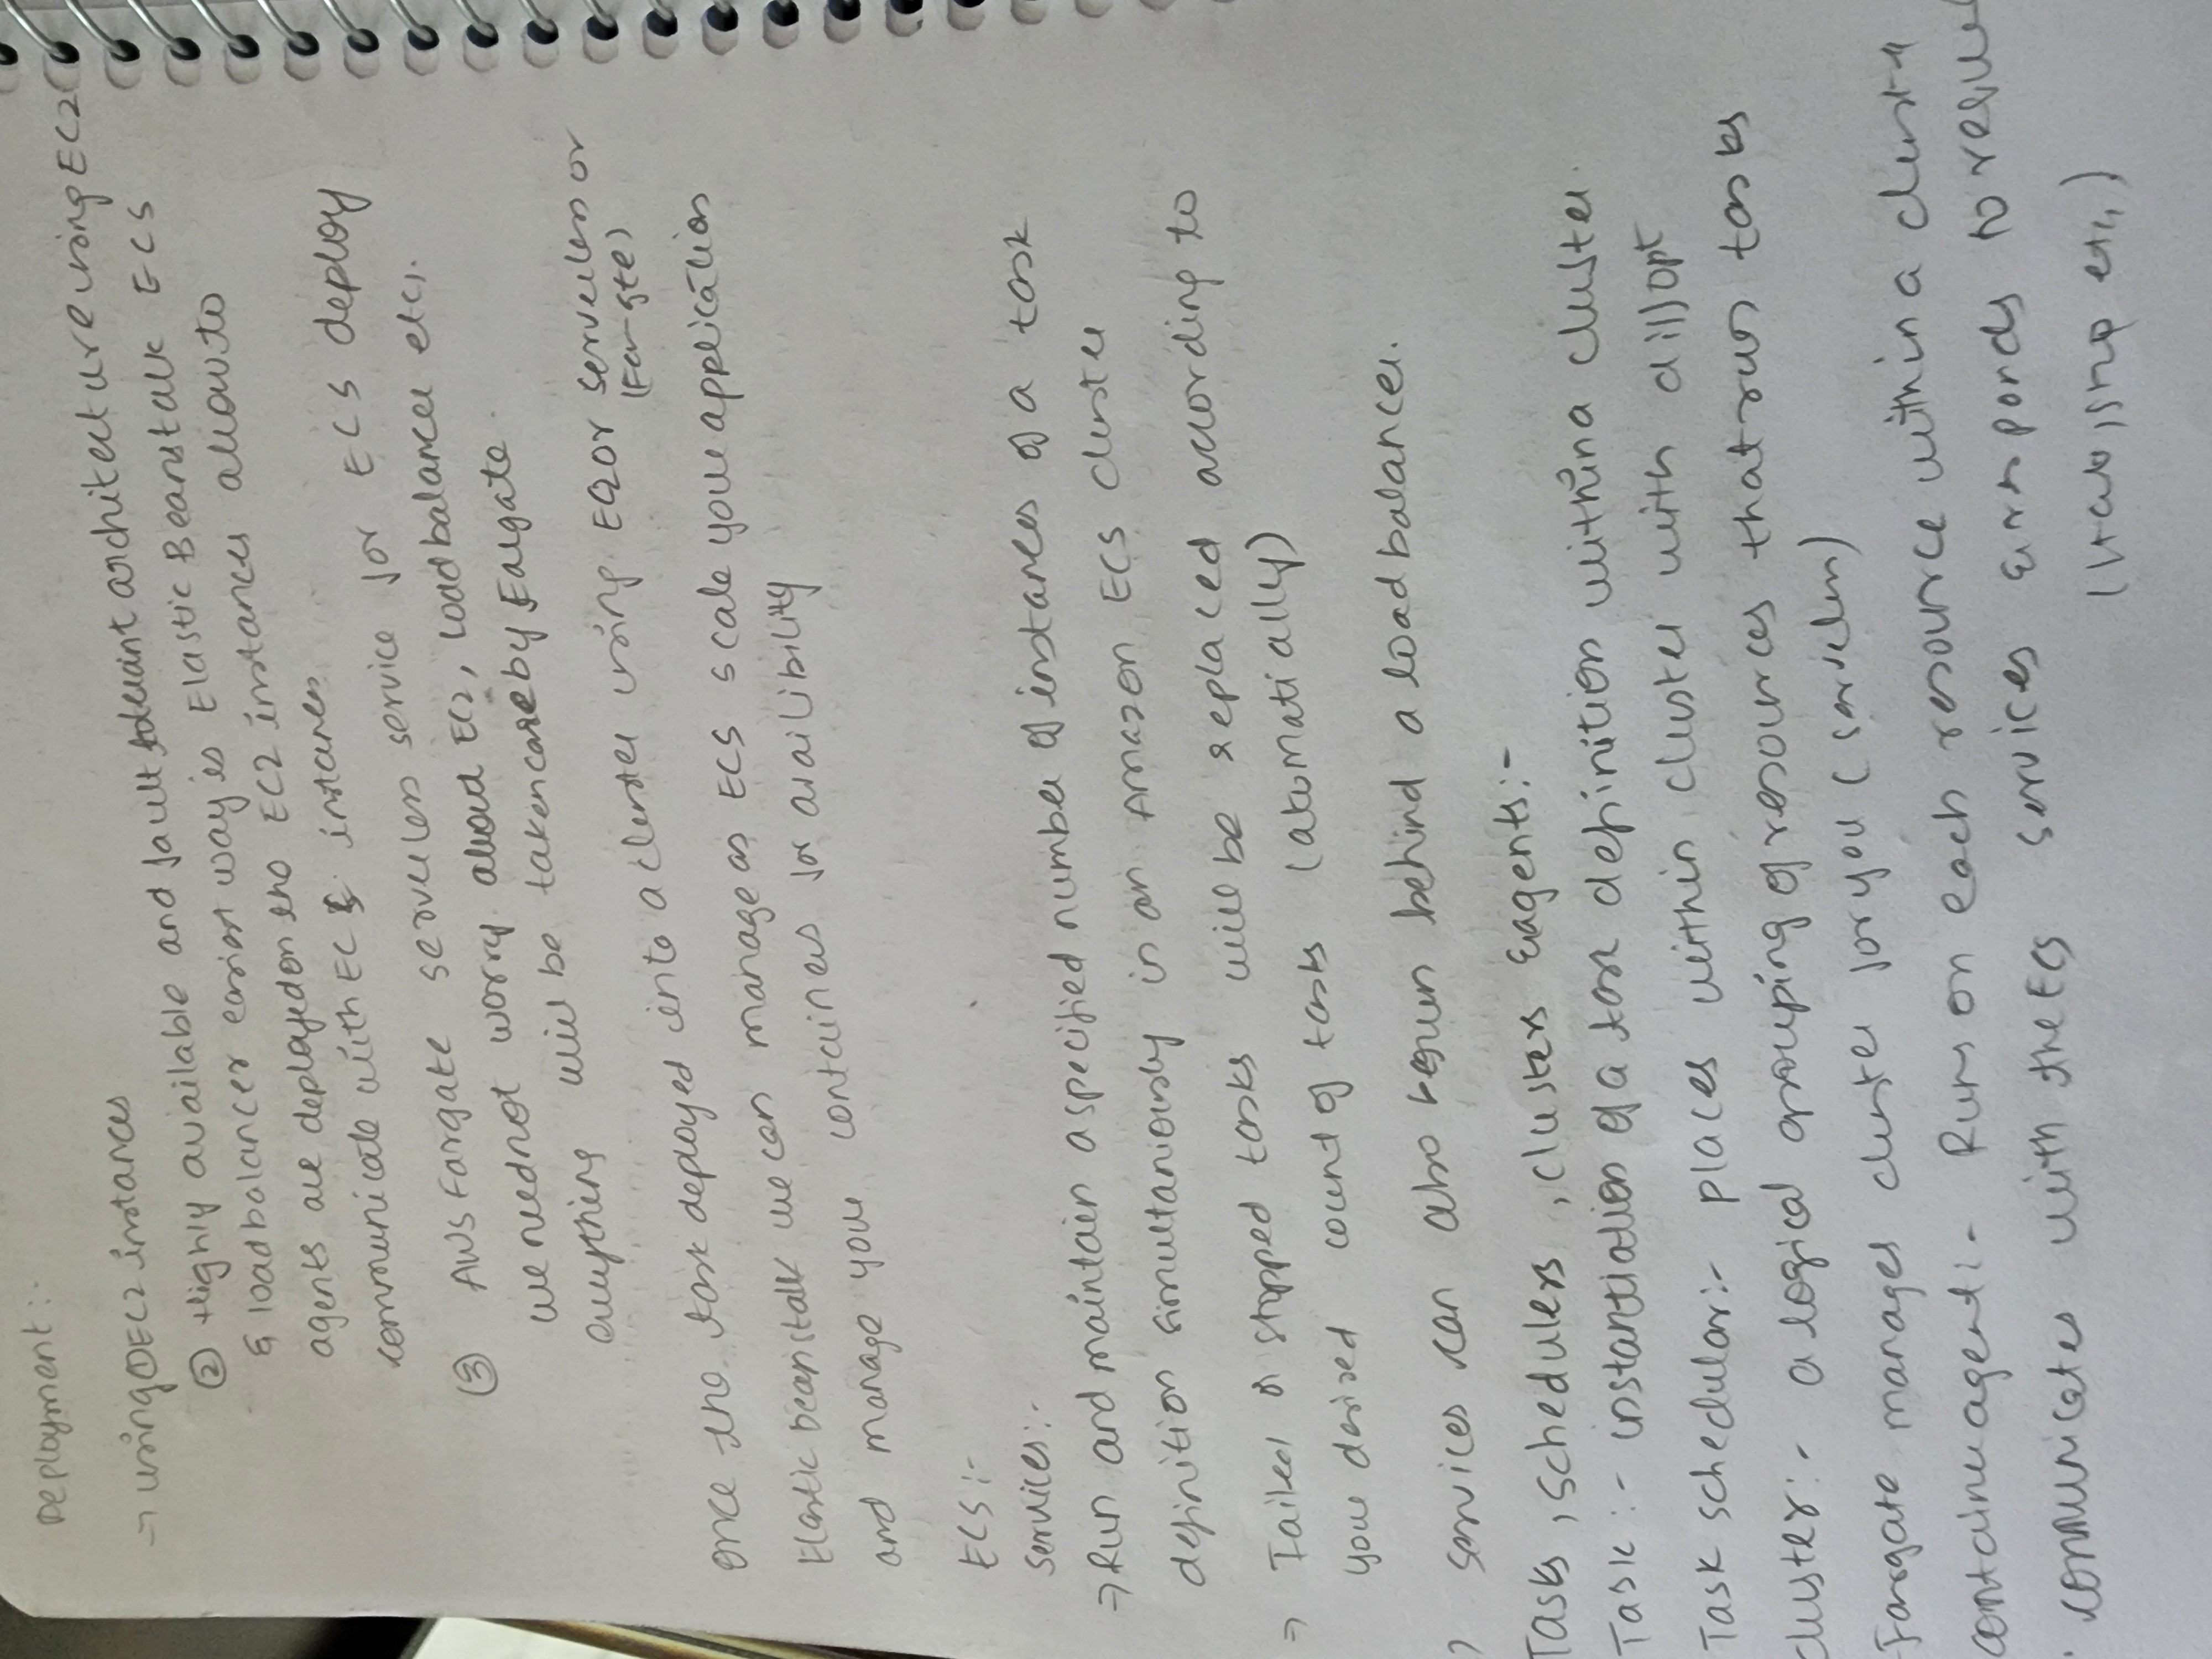 Deployment :-
→ using ① EC2 instances
② Highly available and fault tolerant architecture using EC2
& loadbalancer easiest way is Elastic Beanstalk ECS
agents are deployed on the EC2 instances allow to
communicate with ECS instances
③ AWS Fargate serverless service for ECS deploy
we need not worry about EC2, Loadbalancer etc.
everything will be taken care by Fargate.
once the task deployed into a cluster using EC2 or serverless or
(Fargte)
Elastic beanstalk we can manage as ECS scale your application
and manage your containers for availibility
ECS :-
Services:-
→ Run and maintain a specified number of instances of a task
definition simultaniously in an Amazon ECS cluster
→ Failed or stopped tasks will be replaced according to
your desired count of tasks (atumatially)
services can also run behind a loadbalancer.
Tasks, schedulers, clusters & agents:-
Task :- instantiation of a task definition within a cluster.
Task schedular:- places within cluster with diff opt
cluster:- a logical grouping of resources that runs tasks
Fargate manages cluster for you (serveless)
container agent:- Runs on each resource within a cluster
communicates with the ECS services & responds to
etc,)